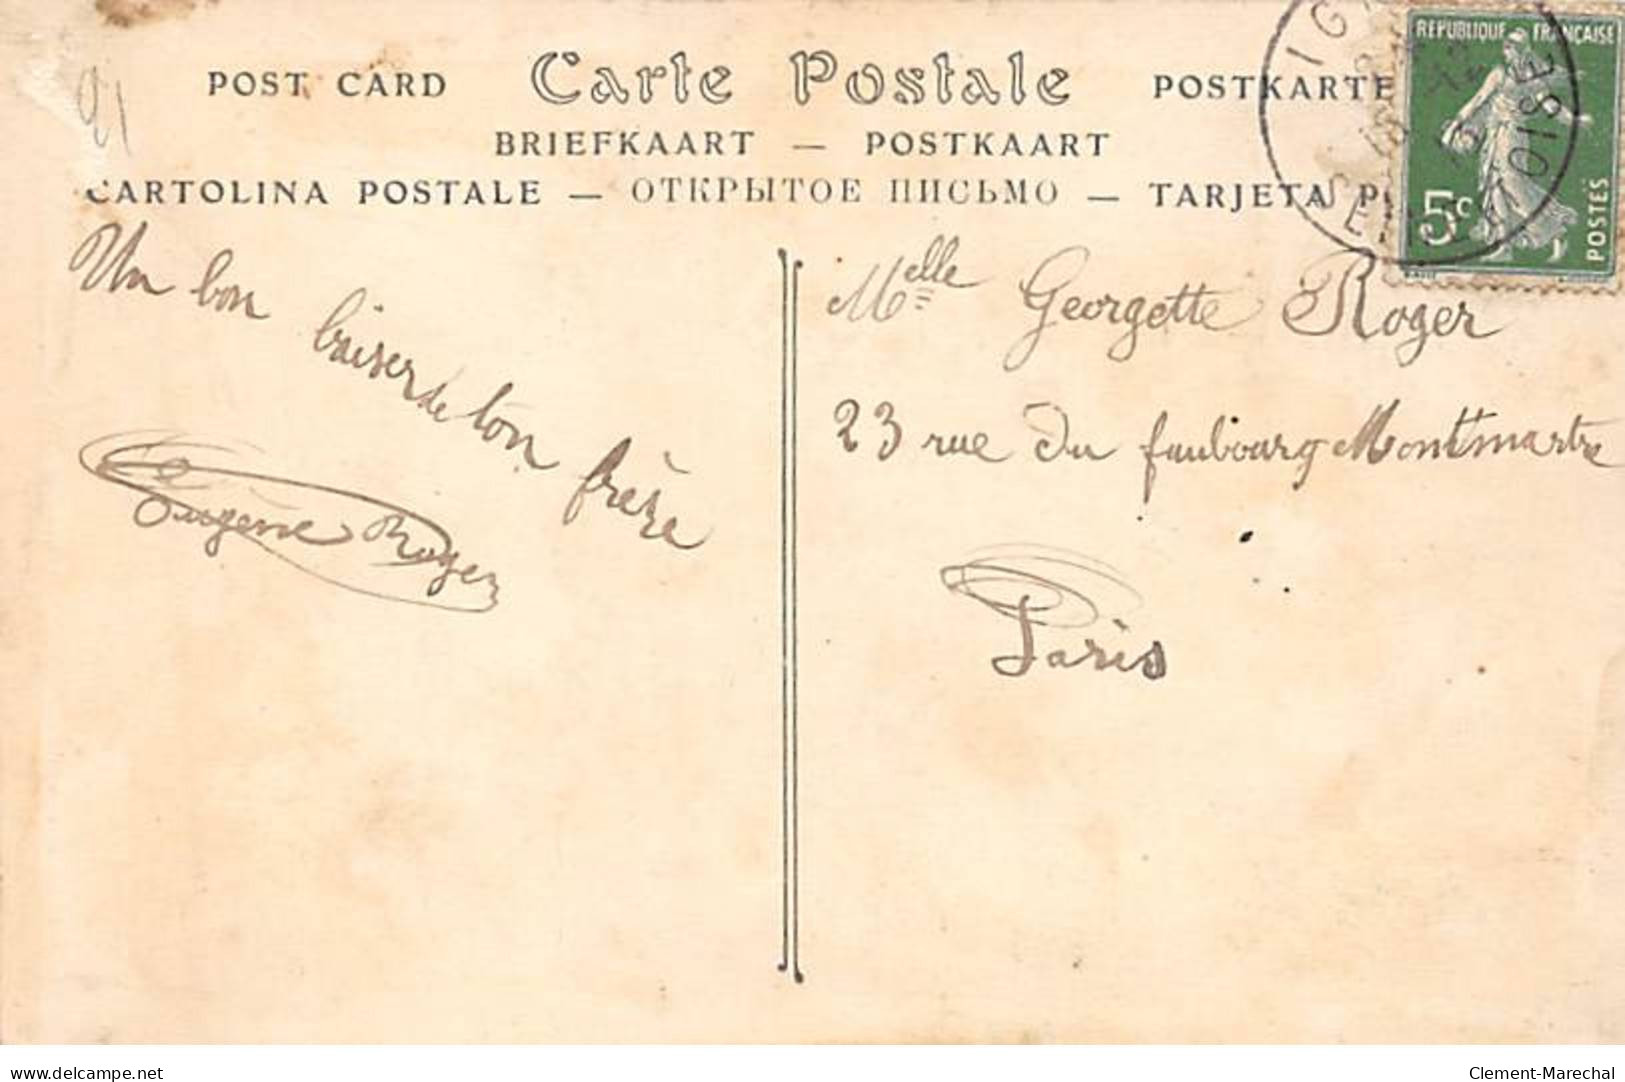 91
POST CARD Carte Postale POSTKARTE
BRIEFKAART — POSTKAART
CARTOLINA POSTALE — ОТКРЫТОЕ ПИСЬМО — TARJETA P
REPUBLIQUE FRANÇAISE
5c
POSTES
SEINE-ET-OISE
Un bon baiser de ton frère
Eugène Roger
Melle Georgette Roger
23 rue du faubourg Montmartre
Paris
delcampe.net
Clement-Marechal